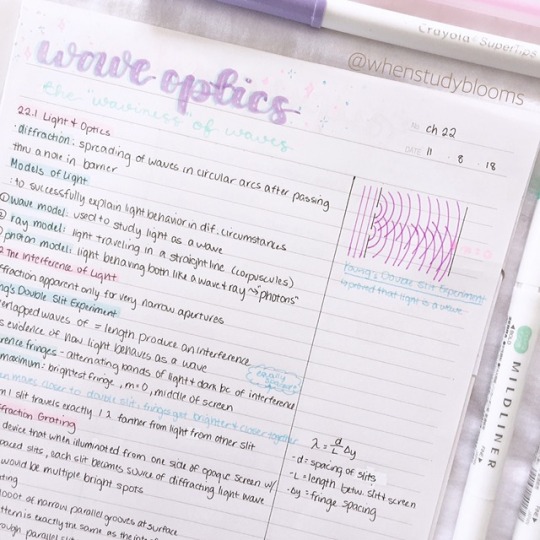 Crayola SuperTips
@whenstudyblooms
wave optics
the "waviness" of waves
No ch 22
DATE 11 . 8 . 18
22.1 Light & Optics
diffraction: spreading of waves in circular arcs after passing
thru a hole in barrier
Models of Light
: to successfully explain light behavior in dif. circumstances
① wave model: used to study light as a wave
② ray model: light traveling in a straight line (corpuscles)
③ photon model: light behaving both like a wave & ray → "photons"
2 The Interference of Light
ffraction apparent only for very narrow apertures
ng's Double Slit Experiment
erlapped waves of = length produce an interference
s evidence of how light behaves as a wave
erence fringes - alternating bands of light & dark bc of interference
maximum: brightest fringe, m=0, middle of screen
en moves closer to double slit, fringes get brighter & closer together
m 1 slit travels exactly 1 λ farther from light from other slit
ffraction Grating
device that when illuminated from one side of opaque screen w/
paced slits, each slit becomes source of diffracting light wave
would be multiple bright spots
ting
1000t of narrow parallel grooves at surface
attern is exactly the same as the
rough parallel
m = 0
Young's Double Slit Experiment
: proved that light is a wave
λ = d/L Δy
- d = spacing of slits
- L = length betw. slit & screen
- Δy = fringe spacing
MILDLINER